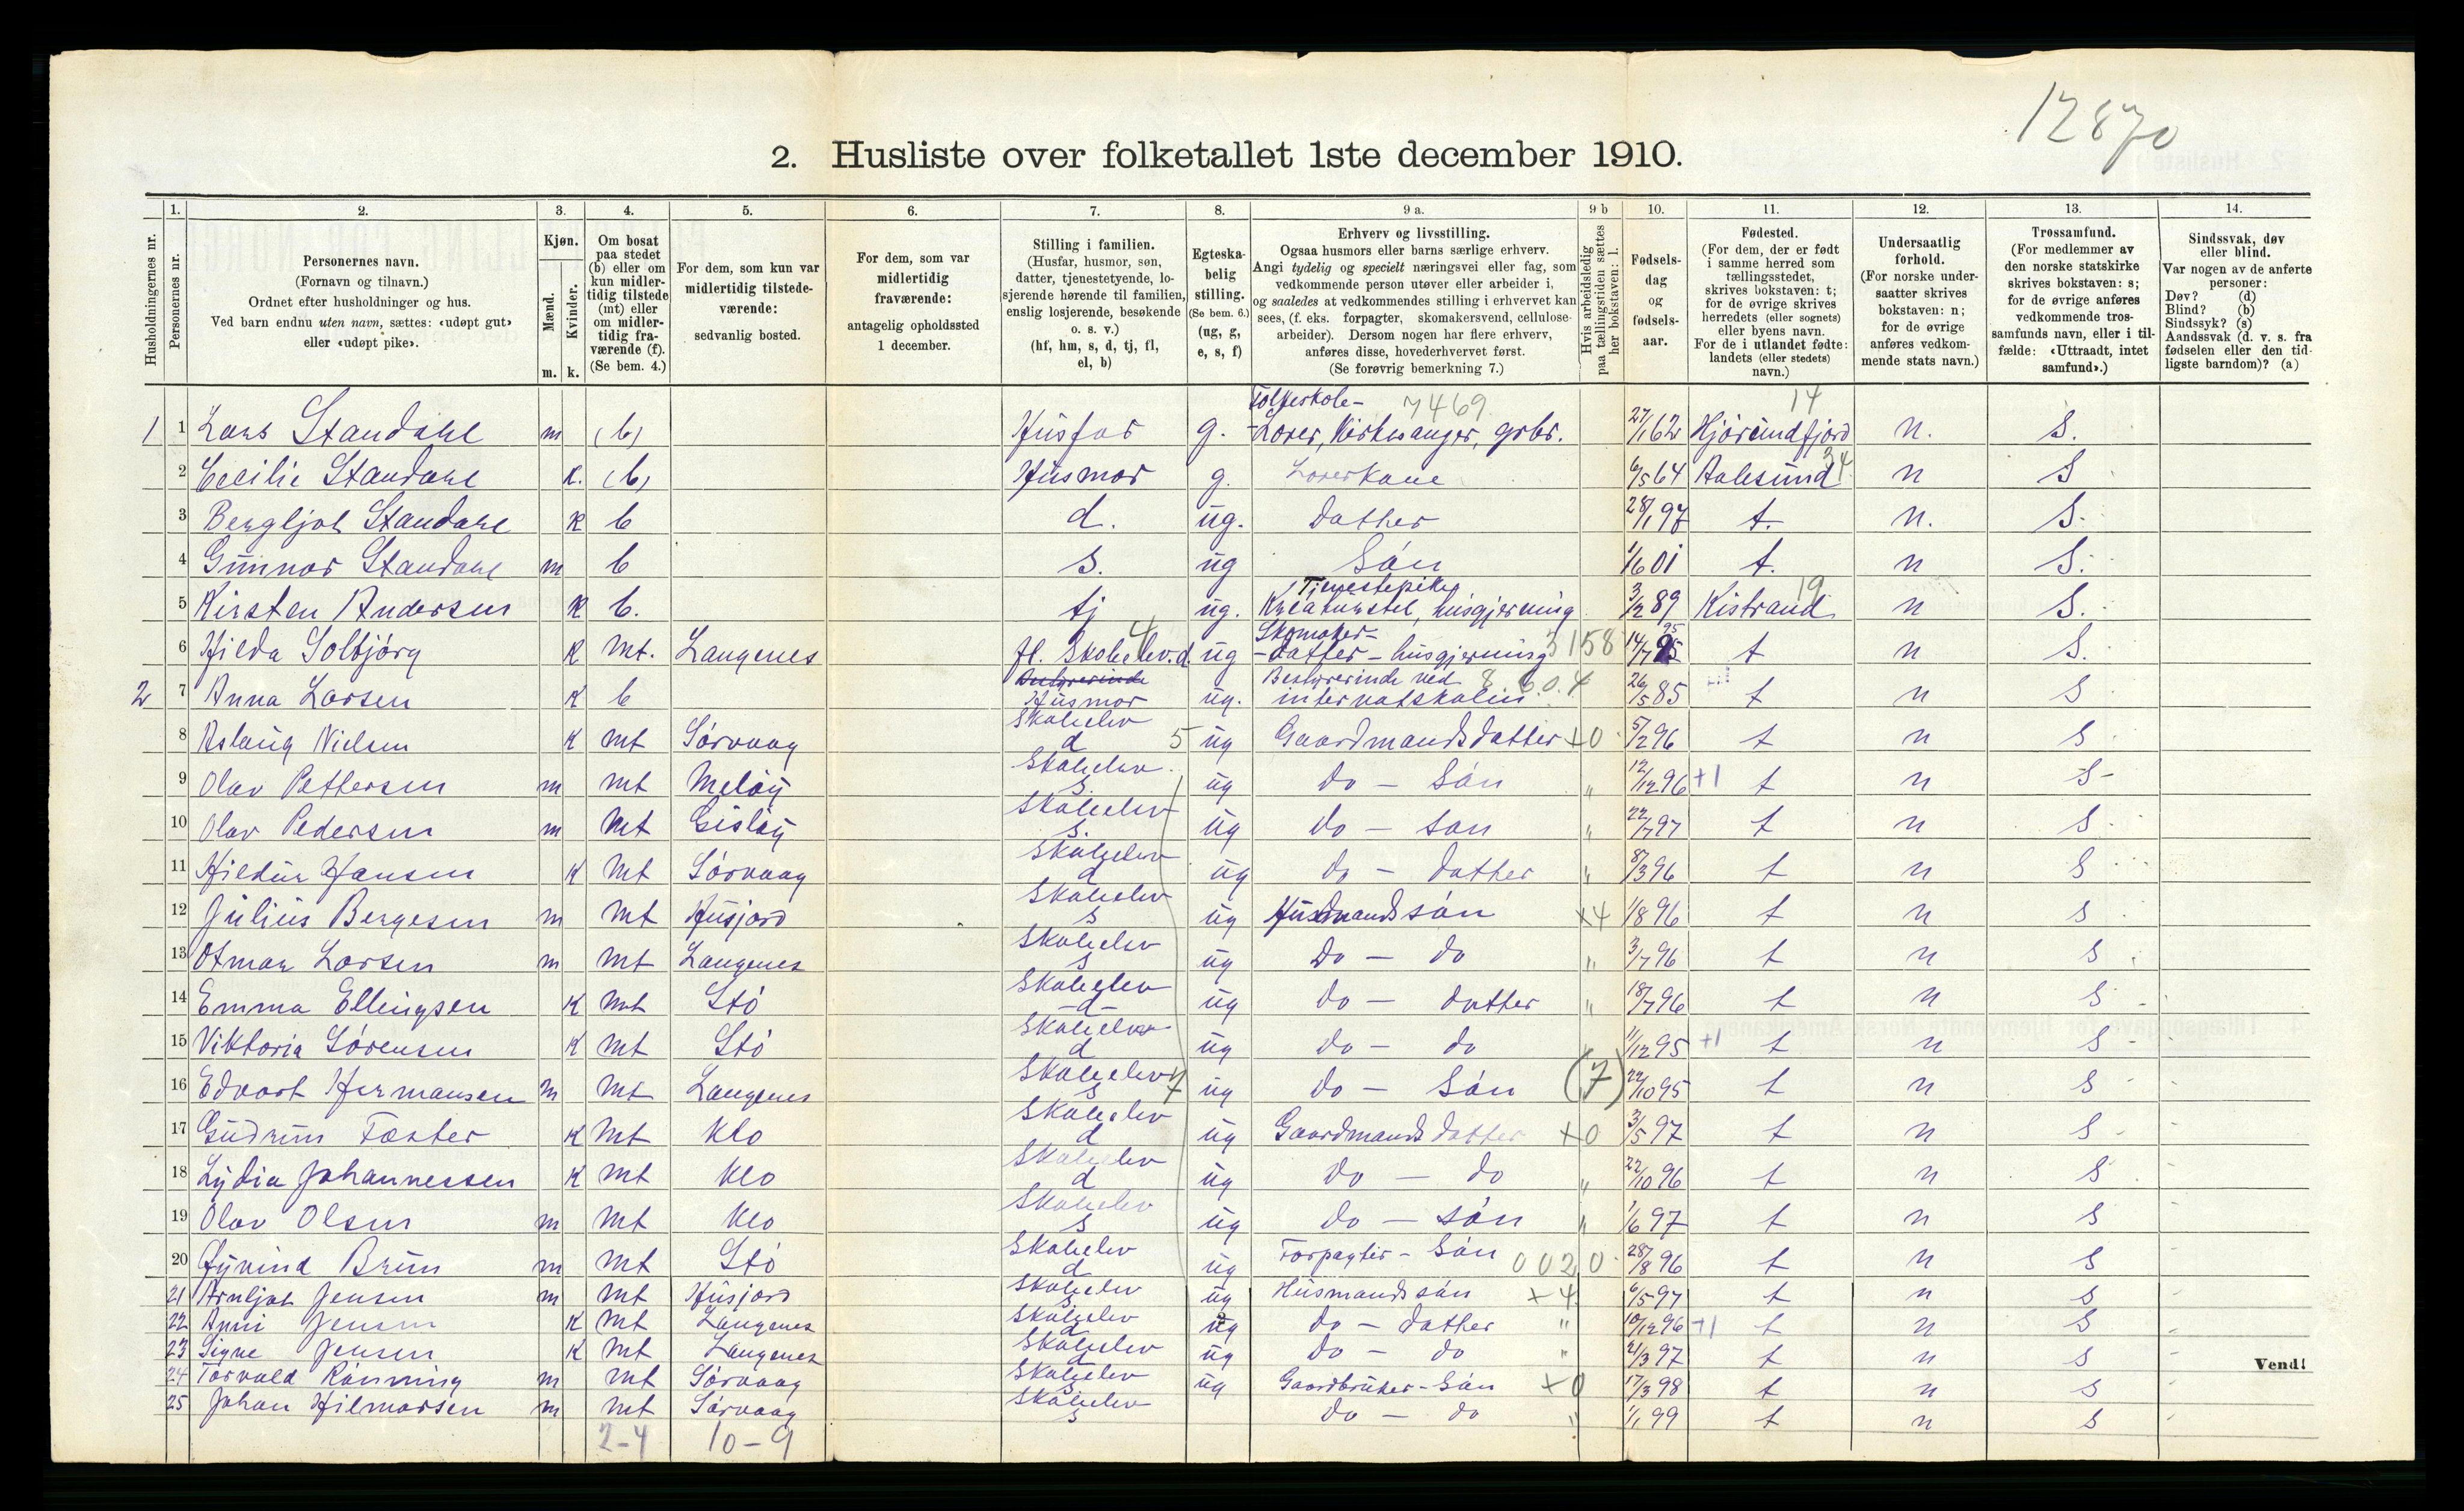 12870
2. Husliste over folketallet 1ste december 1910.
Husholdningernes nr.
1. Personernes nr.
2. Personernes navn. (Fornavn og tilnavn.) Ordnet efter husholdninger og hus. Ved barn endnu uten navn, sættes: «udøpt gut» eller «udøpt pike».
3. Kjøn. Mænd. Kvinder. m. k.
4. Om bosat paa stedet (b) eller om kun midlertidig tilstede (mt) eller om midlertidig fraværende (f). (Se bem. 4.)
5. For dem, som kun var midlertidig tilstedeværende: sedvanlig bosted.
6. For dem, som var midlertidig fraværende: antagelig opholdssted 1 december.
7. Stilling i familien. (Husfar, husmor, søn, datter, tjenestetyende, losjerende hørende til familien, enslig losjerende, besøkende o. s. v.) (hf, hm, s, d, tj, fl, el, b)
8. Egteskabelig stilling. (Se bem. 6.) (ug, g, e, s, f)
9 a. Erhverv og livsstilling. Ogsaa husmors eller barns særlige erhverv. Angi tydelig og specielt næringsvei eller fag, som vedkommende person utøver eller arbeider i, og saaledes at vedkommendes stilling i erhvervet kan sees, (f. eks. forpagter, skomakersvend, cellulosearbeider). Dersom nogen har flere erhverv, anføres disse, hovederhvervet først. (Se forøvrig bemerkning 7.)
9 b Hvis arbeidsledig paa tællingstiden sættes her bokstaven: l.
10. Fødselsdag og fødselsaar.
11. Fødested. (For dem, der er født i samme herred som tællingsstedet, skrives bokstaven: t; for de øvrige skrives herredets (eller sognets) eller byens navn. For de i utlandet fødte: landets (eller stedets) navn.)
12. Undersaatlig forhold. (For norske undersaatter skrives bokstaven: n; for de øvrige anføres vedkommende stats navn.)
13. Trossamfund. (For medlemmer av den norske statskirke skrives bokstaven: s; for de øvrige anføres vedkommende trossamfunds navn, eller i tilfælde: «Uttraadt, intet samfund».)
14. Sindssvak, døv eller blind. Var nogen av de anførte personer: Døv? (d) Blind? (b) Sindssyk? (s) Aandssvak (d. v. s. fra fødselen eller den tidligste barndom)? (a)
Folkeskole- 7469 14
1 1 Lars Standahl m (b) Husfar g. -Lærer, Kirkesanger, grbr. 27/1 62 Hjørundfjord n. S.
2 Cecilie Standahl K. (b) Husmor g. Lærerkone 6/5 64 Aalesund 34 n S
3 Bergljot Standahl K b d. ug. datter 28/1 97 t. n. S.
4 Gunnar Standahl m b s. ug Søn 1/6 01 t. n S.
Tjenestepike 19
5 Kirsten Andersen K b. tj ug. Kreaturstel, husgjerning 3/2 89 Kistrand n S.
Skomaker-
6 Hilda Solbjørg K mt. Langenes fl. Skoleelev. d. 4 ug -datter - husgjerning 3158 14/7 95 t n S.
Bestyrerinde Bestyrerinde ved 8.6.0.4
2 7 Anna Larsen K b Husmor ug. internatskolen 26/5 85 t n S
8 Aslaug Nielsen K mt Sørvaag Skoleelev d 5 ug Gaardmandsdatter +0 5/2 96 t n S
9 Olav Pettersen m mt Meløy Skoleelev s. ug do - Søn " 12/12 96 +1 t n S
10 Olav Pedersen m mt Gisløy Skoleelev s. ug do - søn " 22/7 97 t n S
11 Hildur Hansen K mt Sørvaag Skoleelev d ug do - datter " 8/3 96 t n S
12 Julius Bergesen m mt Husjord Skoleelev s ug Husmandssøn +4 1/8 96 t n s
13 Otmar Larsen m mt Langenes Skoleelev s ug do - do " 3/7 96 t n S
14 Emma Ellingsen K mt Stø Skoleelev -d- ug do - datter " 18/7 96 t n S
15 Viktoria Sørensen K mt Stø Skoleelev d ug do - do " 1/12 95 +1 t n S
16 Edvart Hermansen m mt Langenes Skoleelev s 7 ug do - Søn (7) 22/10 95 t n S
17 Gudrun Foster K mt Klo Skoleelev d ug Gaardmandsdatter +0 3/5 97 t n S
18 Lydia Johannessen K mt Klo Skoleelev d ug do - do " 22/10 96 t n S
19 Olav Olsen m mt Klo Skoleelev s ug do - søn " 1/6 97 t n S
20 Øyvind Brun m mt Stø Skoleelev d ug Forpagter - Søn 002 0 28/8 96 t n S
21 Arnljot Jensen m mt Husjord Skoleelev s ug Husmandssøn +4 6/5 97 t n s
22 Anni Jensen K mt Langenes Skoleelev d ug do - datter " 10/12 96 +1 t n S
23 Signe Jensen K mt Langenes Skoleelev d ug do - do " 21/3 97 t n s
24 Torvald Rønning m mt Sørvaag Skoleelev s ug Gaardbruker - Søn +0 17/3 98 t n s
25 Johan Hilmarsen m mt Sørvaag Skoleelev s do - do " 1/1 99 t n s
Vend!
2-4 10-9